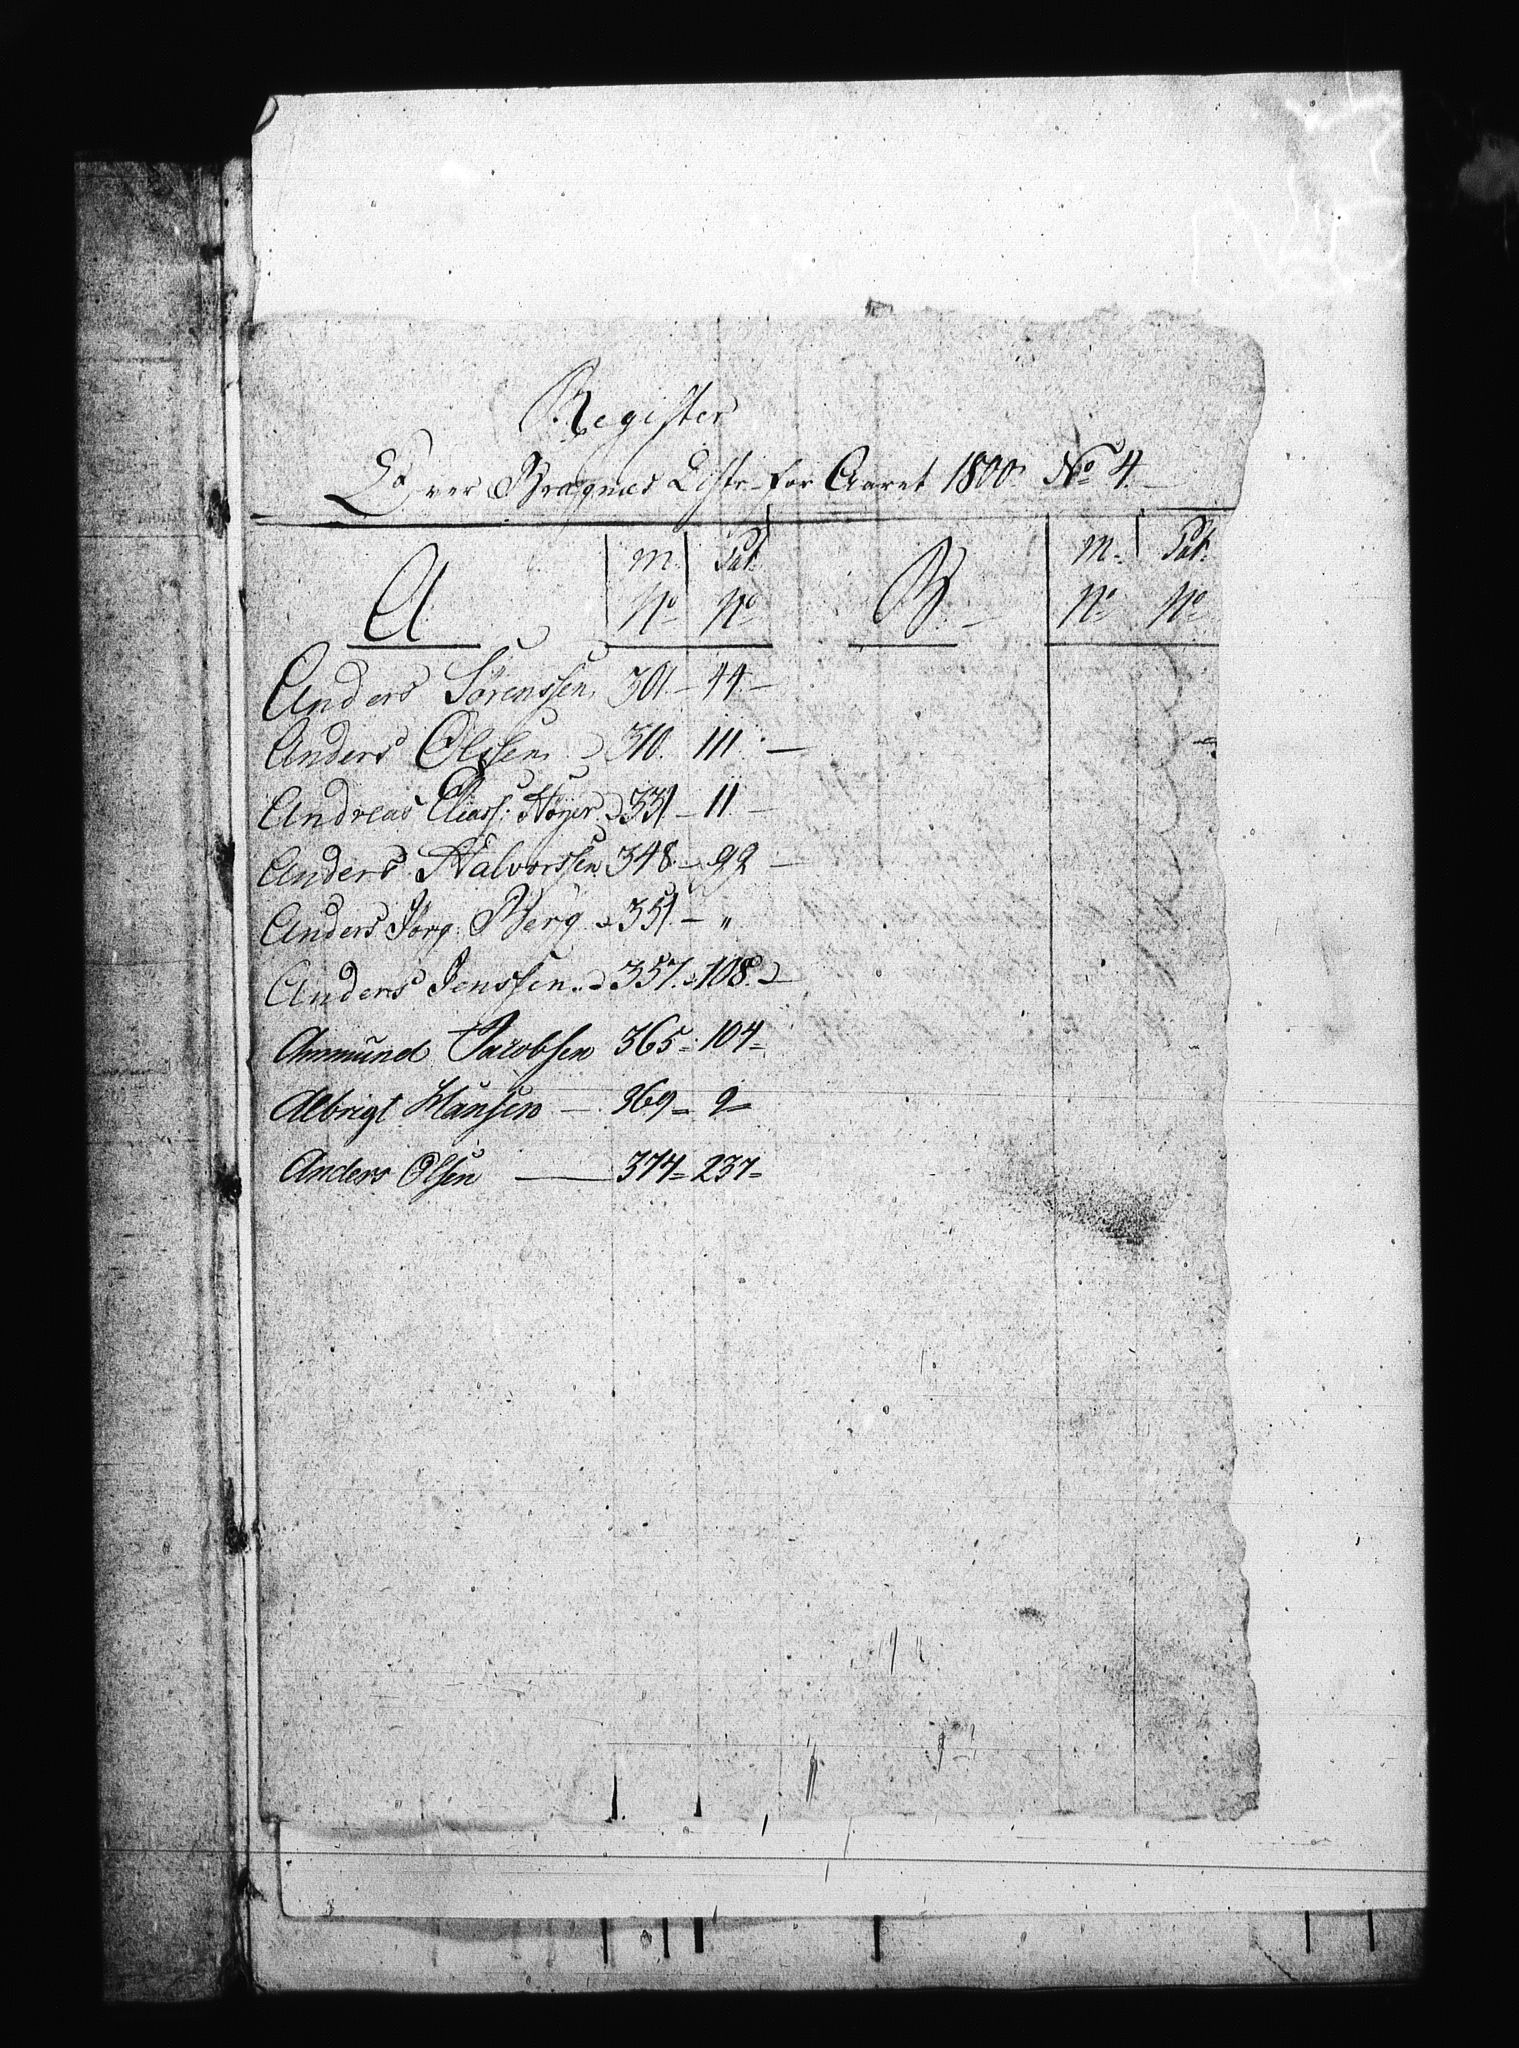 Register
Over Bragnæs Distr. for Aaret 1800. No 4.
A. m. No Pat. No B. m. No Pat. No
Anders Sörenssen 301. 44.
Anders Olssen 310. 111.
Andreas Eliass: Höyer 331. 11.
Anders Halvorssen 348. 92
Anders Jörg: Berg 351. "
Anders Jenssen 357. 108.
Ammund Jacobsen 365 104
Albrigt Hansen 369 2
Anders Olsen 374 237